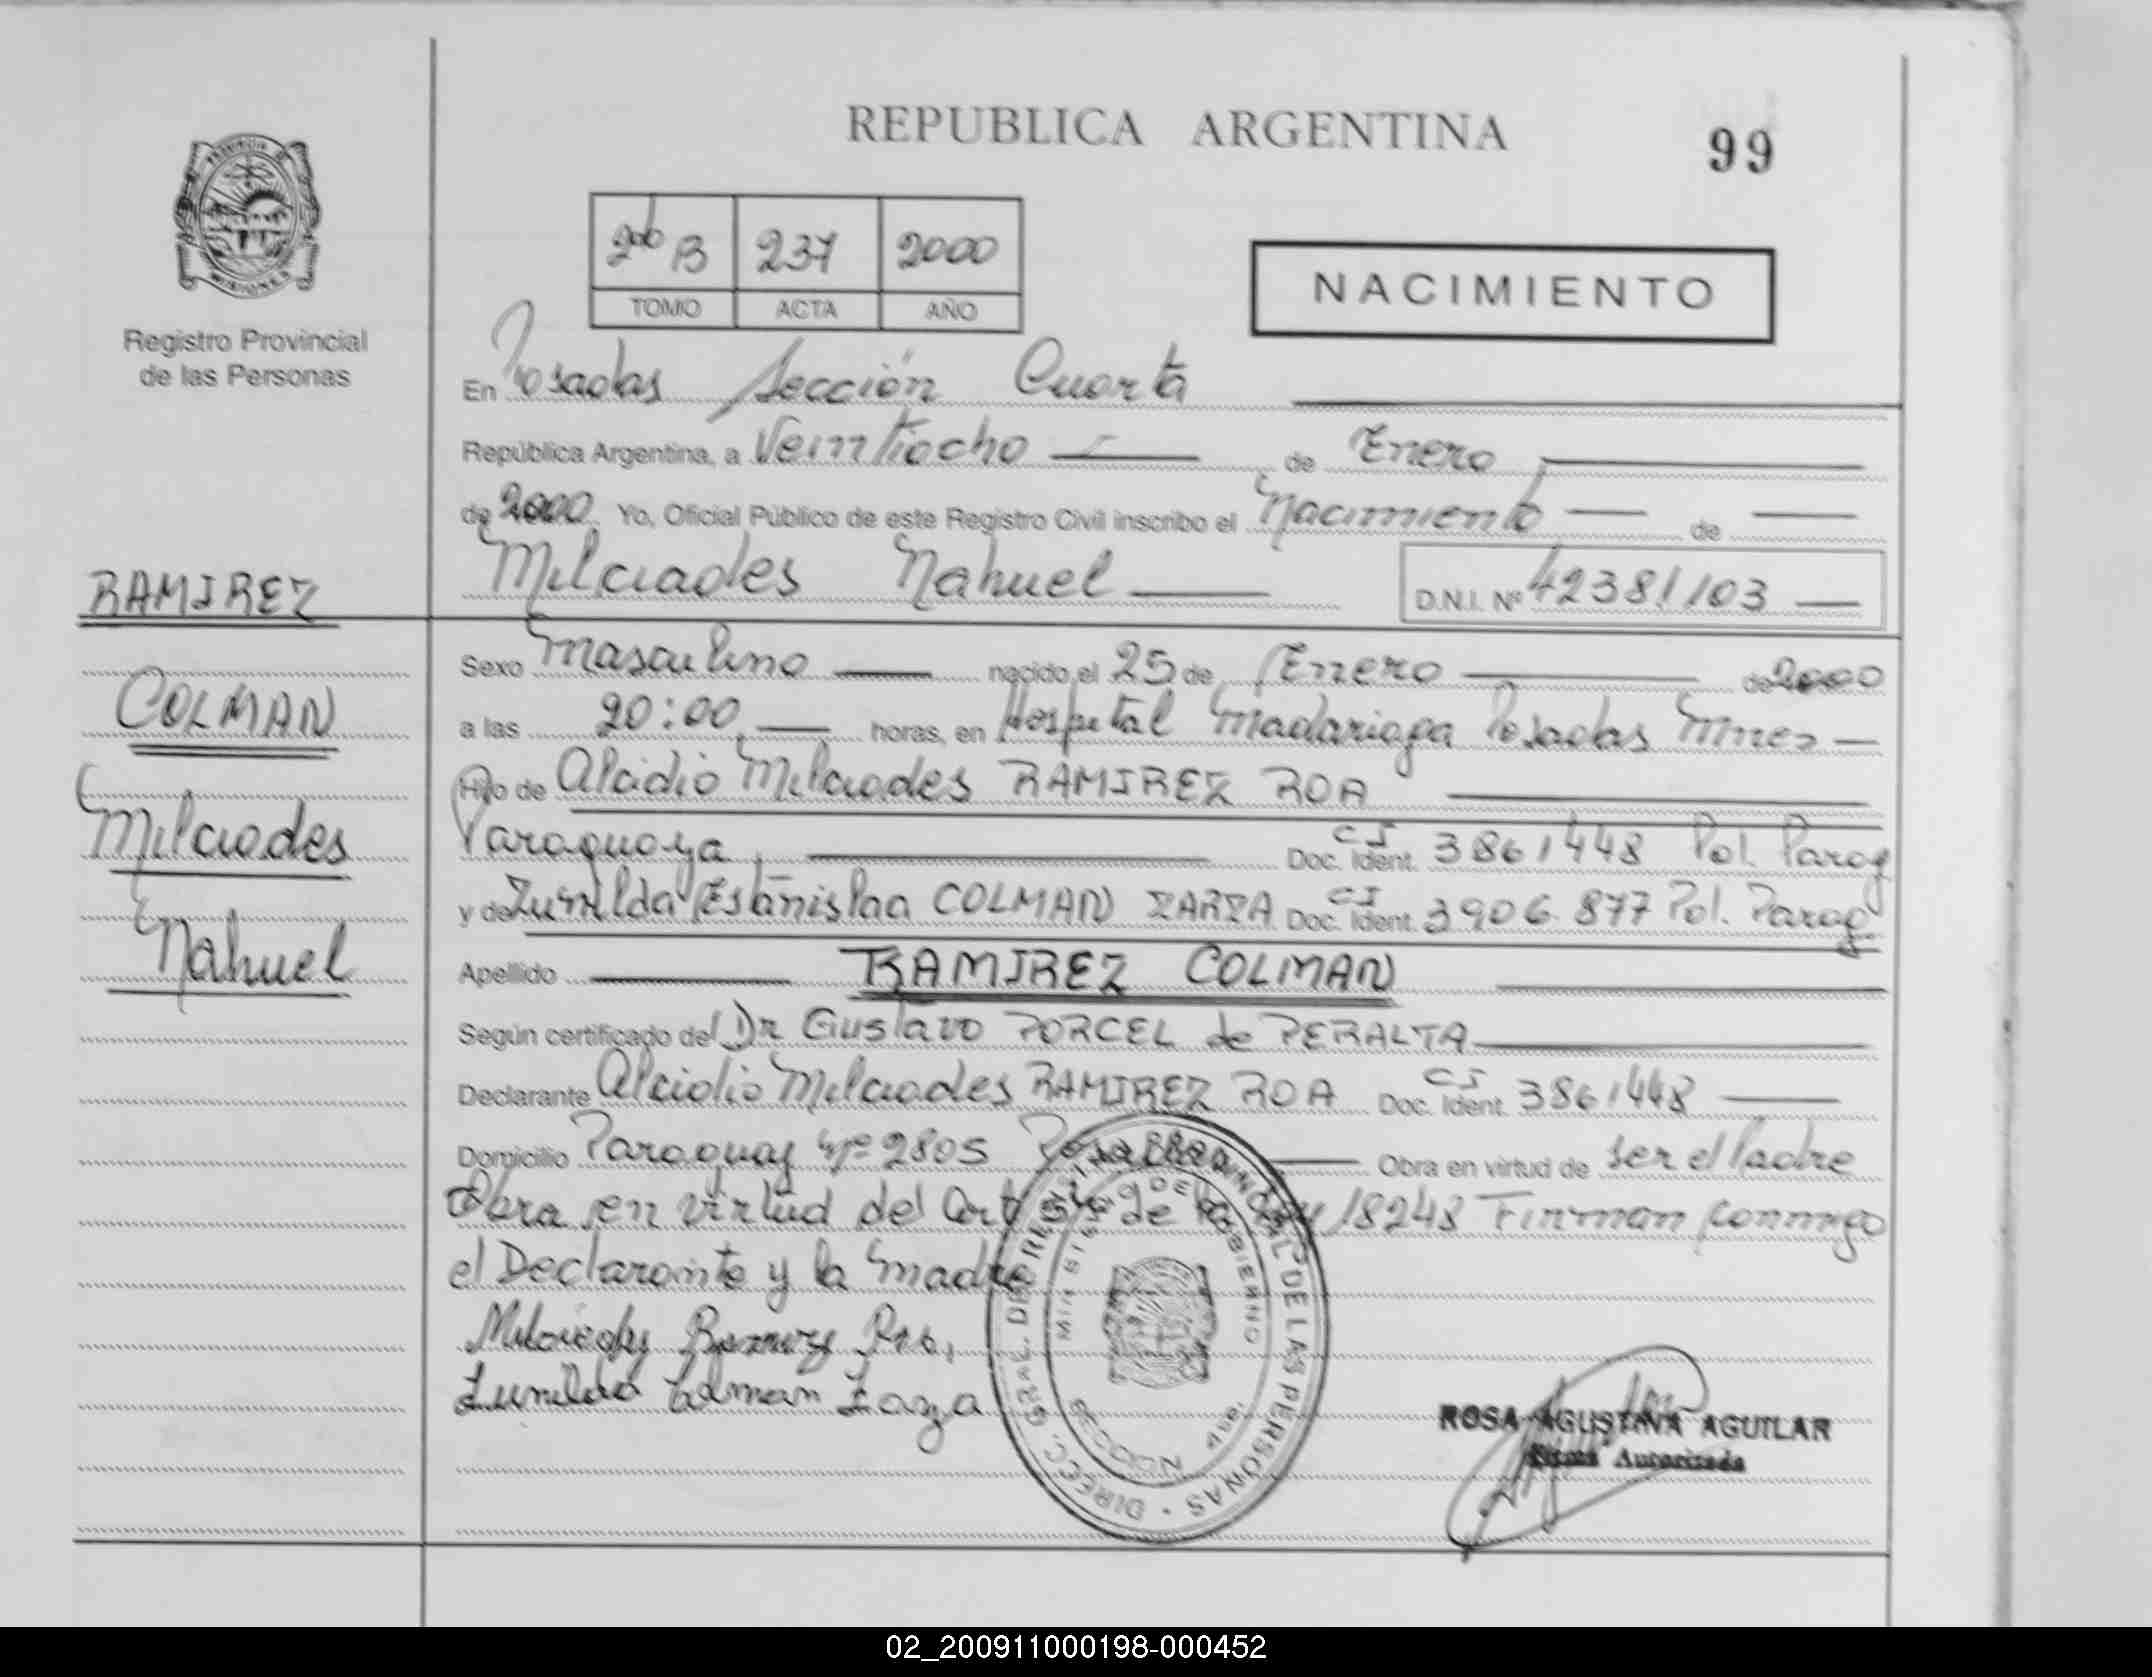 REPUBLICA ARGENTINA
99
2do B 237 2000
TOMO ACTA AÑO
NACIMIENTO
Registro Provincial
de las Personas
En Posadas Sección Cuarta
República Argentina, a Veintiocho de Enero
de 2000 Yo, Oficial Público de este Registro Civil inscribo el Nacimiento de
Milciades Nahuel D.N.I. Nº 42381103
RAMIREZ
COLMAN
Milciades
Nahuel
Sexo Masculino nacido el 25 de Enero de 2000
a las 20:00 horas, en Hospital Madariaga Posadas Mnes
Hijo de Alcidio Milciades RAMIREZ ROA
Paraguaya, Doc. Ident. CI 3861448 Pol. Parag
y de Zunilda Estanislaa COLMAN ZARZA Doc. Ident. CI 3906.877 Pol. Parag
Apellido RAMIREZ COLMAN
Según certificado del Dr Gustavo PORCEL de PERALTA
Declarante Alcidio Milciades RAMIREZ ROA Doc. Ident. CI 3861448
Domicilio Paraguay Nº 2805 Posadas Obra en virtud de ser el Padre
Obra en virtud del Art de la Ley 18248 Firman conmigo
el Declarante y la Madre
Zunilda Colman Zarza
DIRECC. GRAL. DEL REGISTRO PROVINCIAL DE LAS PERSONAS
MINISTERIO DE GOBIERNO
SECCION 4ta.
ROSA AGUSTINA AGUILAR
Firma Autorizada
02_200911000198-000452